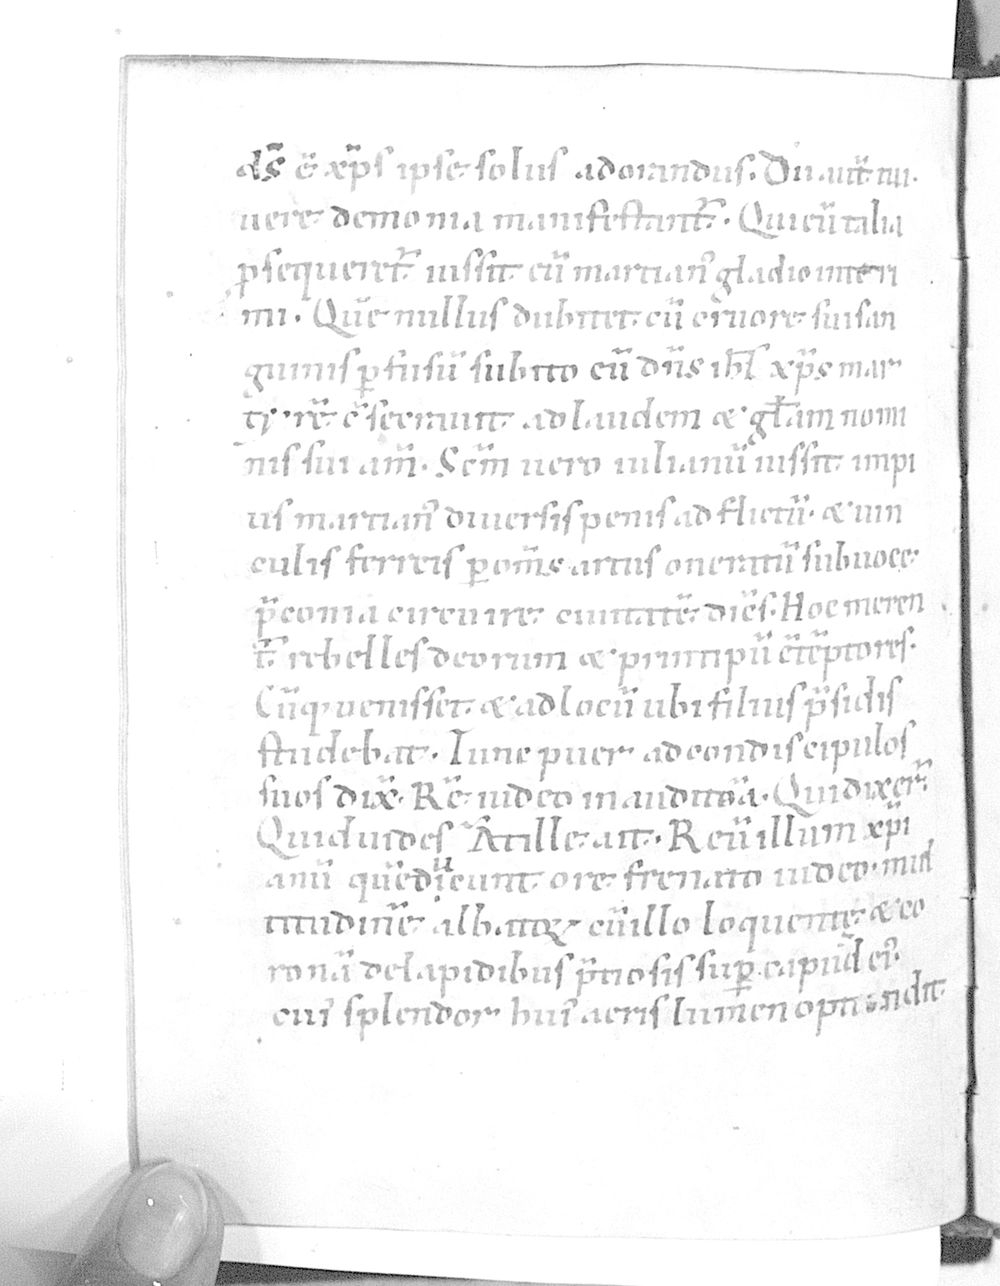 ds̄ ē xp̄s ipse solus adorandus. Du
uere demonia manifestant᷑. Qui cū talia
ꝑsequeret᷑ iussit eū martianꝰ gladio interi
mi. Quē nullus dubitet cū cruore sui san
guinis ꝑfusū subito cū dn̄s ih̄s xp̄s mar
 ad laudem & gl̄am nomi
nis sui am̄. Sc̄m uero iulianū iussit impi
us martianꝰ diuersis penis adflictū. & uin
culis ferreis ꝑ om̄s artus oneratū sub uoce
p̄conia circuire ciuitatē dicēs. Hoc meren
t᷑ rebelles deorum & principū
Cūq; uenisset & ad locū ubi filius p̄sidis
studebat. Tunc puer ad condiscipulos
suos dix̄. Rē uideo inauditā. Qui dixer̄
Quid uides At ille ait. Reū illum xp̄i
anū quē ducunt ore frenato uideo. mul
titudinē albatoꝝ cū illo loquentē & co
ronā de lapidibus p̄tiosis suꝑ caput eiꝰ.
cuiꝰ splendor huiꝰ aeris lumen